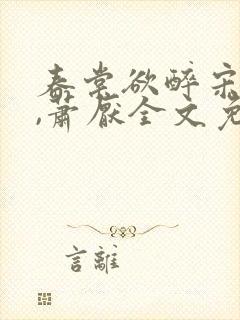 春棠欲醉宋
,萧厌全文免
言離